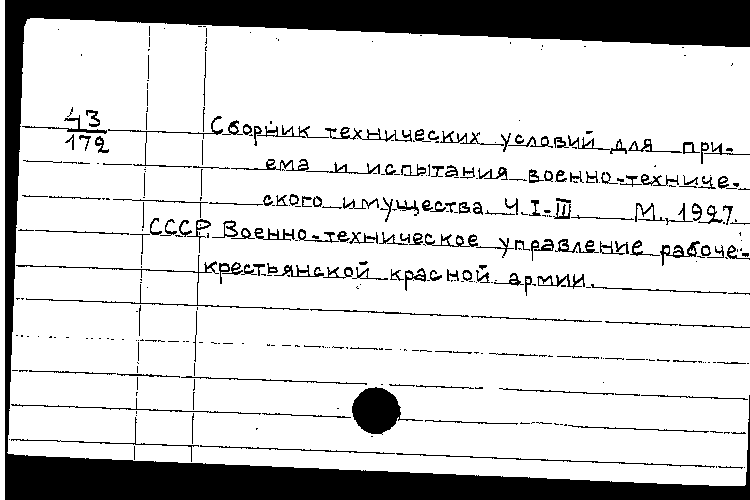 43
172
Сборник технических условий для при-
ема и испытания военно-техниче-
ского имущества. Ч. I-III. М., 1927.
СССР. Военно-техническое управление рабоче-
крестьянской красной армии.